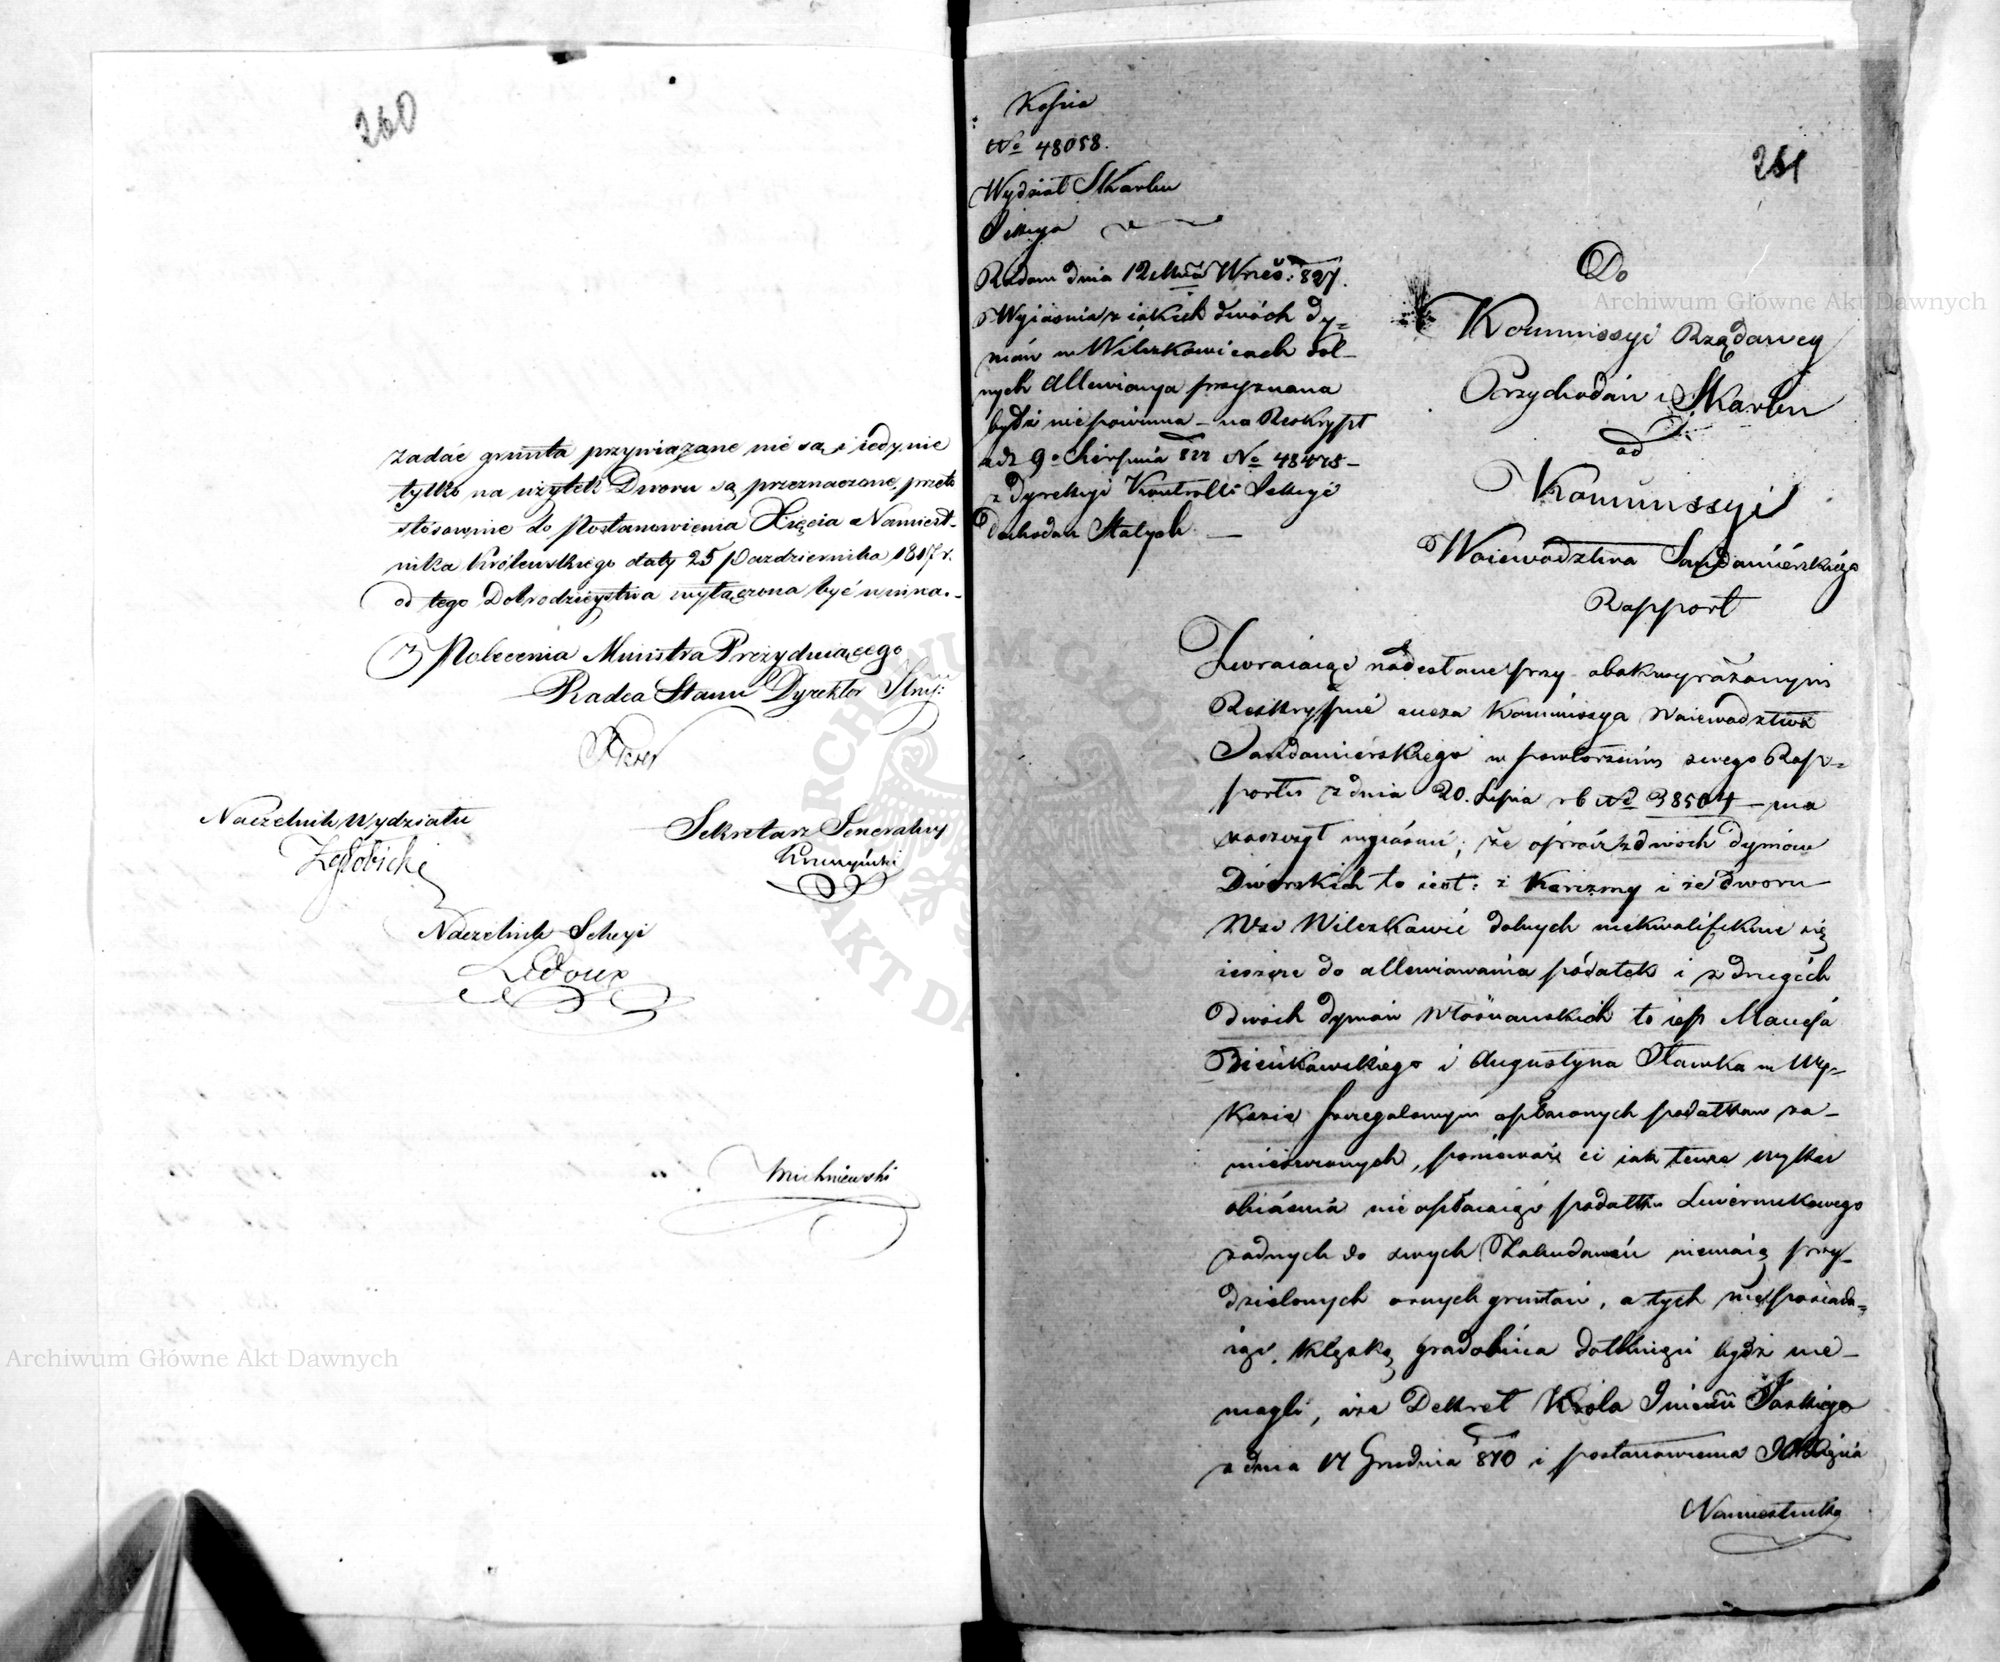 260
żadać grunta przywiązane nie są, i iedynie
tylko na użytek Dworu są przeznaczone, przeto
stosownie do Postanowienia Xięcia Namiest-
nika Królewskiego daty 25 Pazdziernika 1817 r.
od tego Dobrodzieystwa wyłączona być winna.-
Z Polecenia Ministra Prezyduiącego
Radca Stanu Dyrektor
Naczelnik Wydziału
Sekretarz Jeneralny
Naczelnik Sekcyi
Ledoux
Michniewski
Kopia
No 48058.
Wydział Skarbu
Sekcya
Radom dnia 12 Mca Wrześ: 827.
Wyiaśnia z iakich dwóch dy-
mów w Wilczkowicach dol-
nych allewiacya przyznana
bydź niepowinna - na Reskrypt
z d. 9o Sierpnia 827 No 48475 -
z Dyrekcyi Kontrolli Sekcyi
Dochodów Stałych -
261
Do
Kommissyi Rządowey
Przychodów i Skarbu
od
Kommissyi
Woiewodztwa Sandomierskiego
Rapport
Zwracaiąc nadesłane przy obokwyrażonym
Reskrypcie Kommissya Woiewodztwa
Sandomierskiego w powtorzeniu swego Rap-
portu z dnia 20. Lipca rb No 38504 - ma
zaszczyt wyiaśnić, że oprócz dwóch dymów
Dworskich to iest: z Karczmy i ze dworu
Wsi Wilczkowic dolnych niekwalifikuie się
ieszcze do allewiowania podatek i z drugich
dwóch dymów Włościańskich to iest Macieja
Bieńkowskiego i Augustyna Sławka w Wy-
kazie szczegolowym opłaconych podatkow za-
mieszczonych, ponieważ ci iak tenże wykaz
obiaśnia nie opłacaiąc podatku Liwerunkowego
żadnych do swych Zabudowań niemaią przy-
dzielonych ornych gruntów, a tych nieposiada-
iąc, klęską gradobicia dotknięci bydź nie-
mogli, że Dekret Króla Imci Saskiego
z dnia 17 Grudnia 810 i postanowienia JO Xięcia
Namiestnika